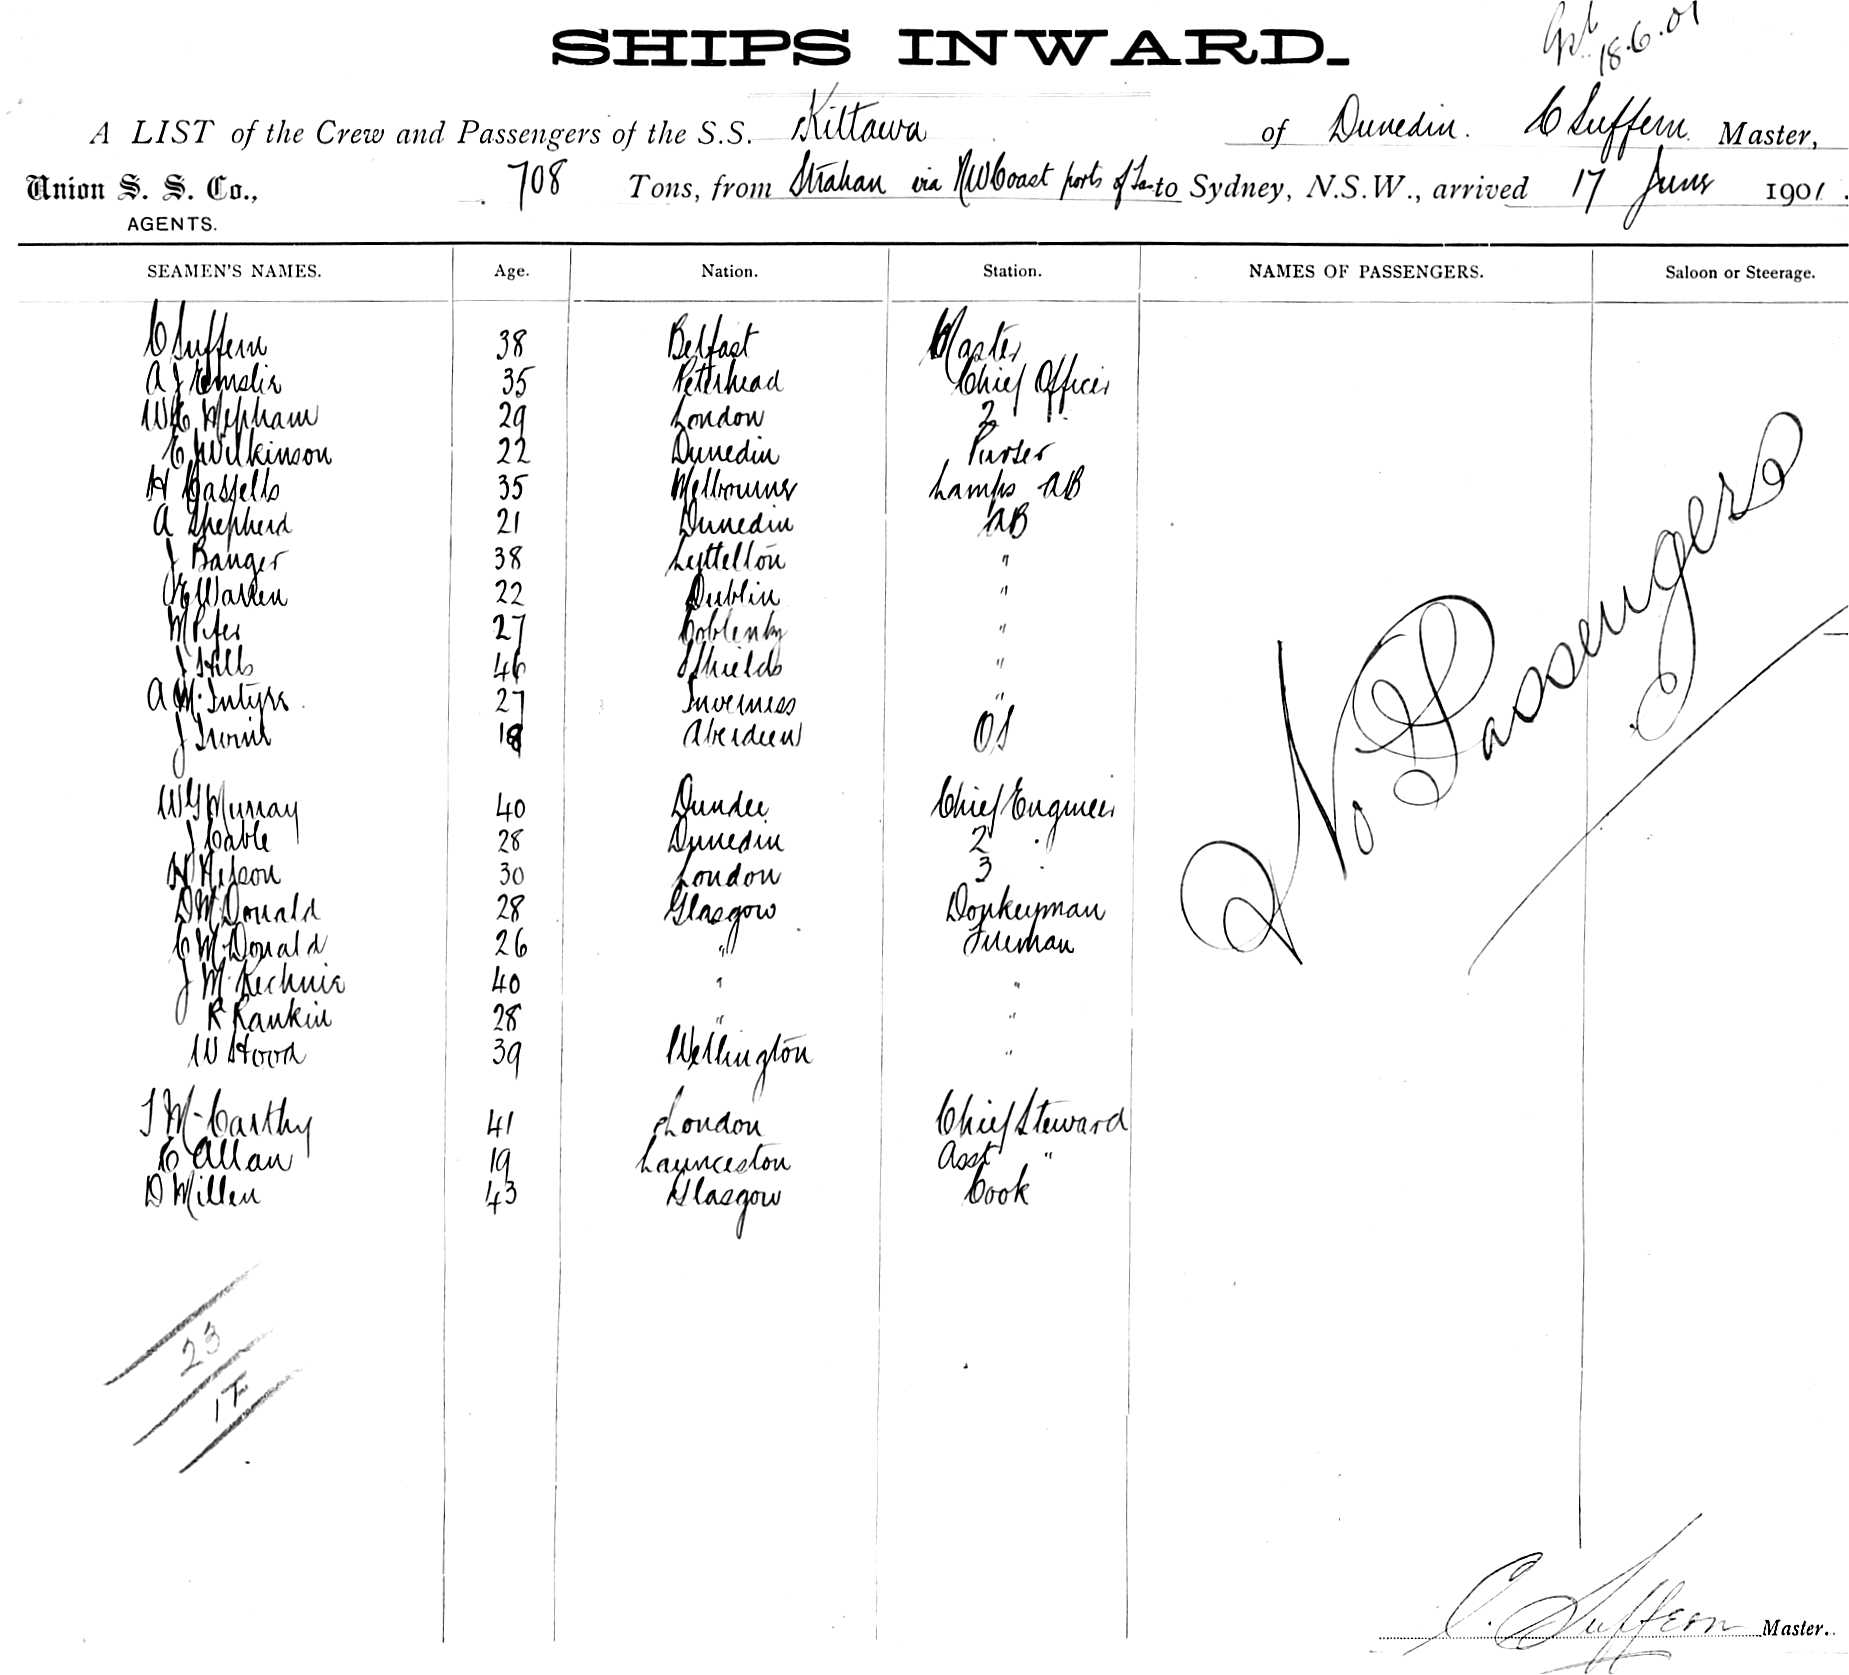 SHIPS INWARD.
18.6.01
A LIST of the Crew and Passengers of the S.S. Kittawa of Dunedin. C Suffern Master,
Union S. S. Co., 708 Tons, from Strahan via NW Coast ports of Tas to Sydney, N.S.W., arrived 17 June 1901.
AGENTS.
SEAMEN'S NAMES. Age. Nation. Station. NAMES OF PASSENGERS. Saloon or Steerage.
C Suffern 38 Belfast Master
A J Emslie 35 Peterhead Chief Officer
W E Mepham 29 London 2 "
C J Wilkinson 22 Dunedin Purser
H Cassells 35 Melbourne Lamps AB
A Shepherd 21 Dunedin AB
J Banger 38 Lyttelton "
Warren 22 Dublin "
M Pifer 27 "
J Hills 46 Shields "
A McIntyre 27 Inverness "
J Irvine 18 Aberdeen OS
No Passengers
W G Murray 40 Dundee Chief Engineer
J Cable 28 Dunedin 2 "
H Nelson 30 London 3 "
D McDonald 28 Glasgow Donkeyman
C McDonald 26 " Fireman
J McKechnie 40 " "
R Rankin 28 " "
W Hood 39 Wellington "
T McCarthy 41 London Chief Steward
C Allan 19 Launceston Asst "
D Millen 43 Glasgow Cook
23
17
C. Suffern Master.